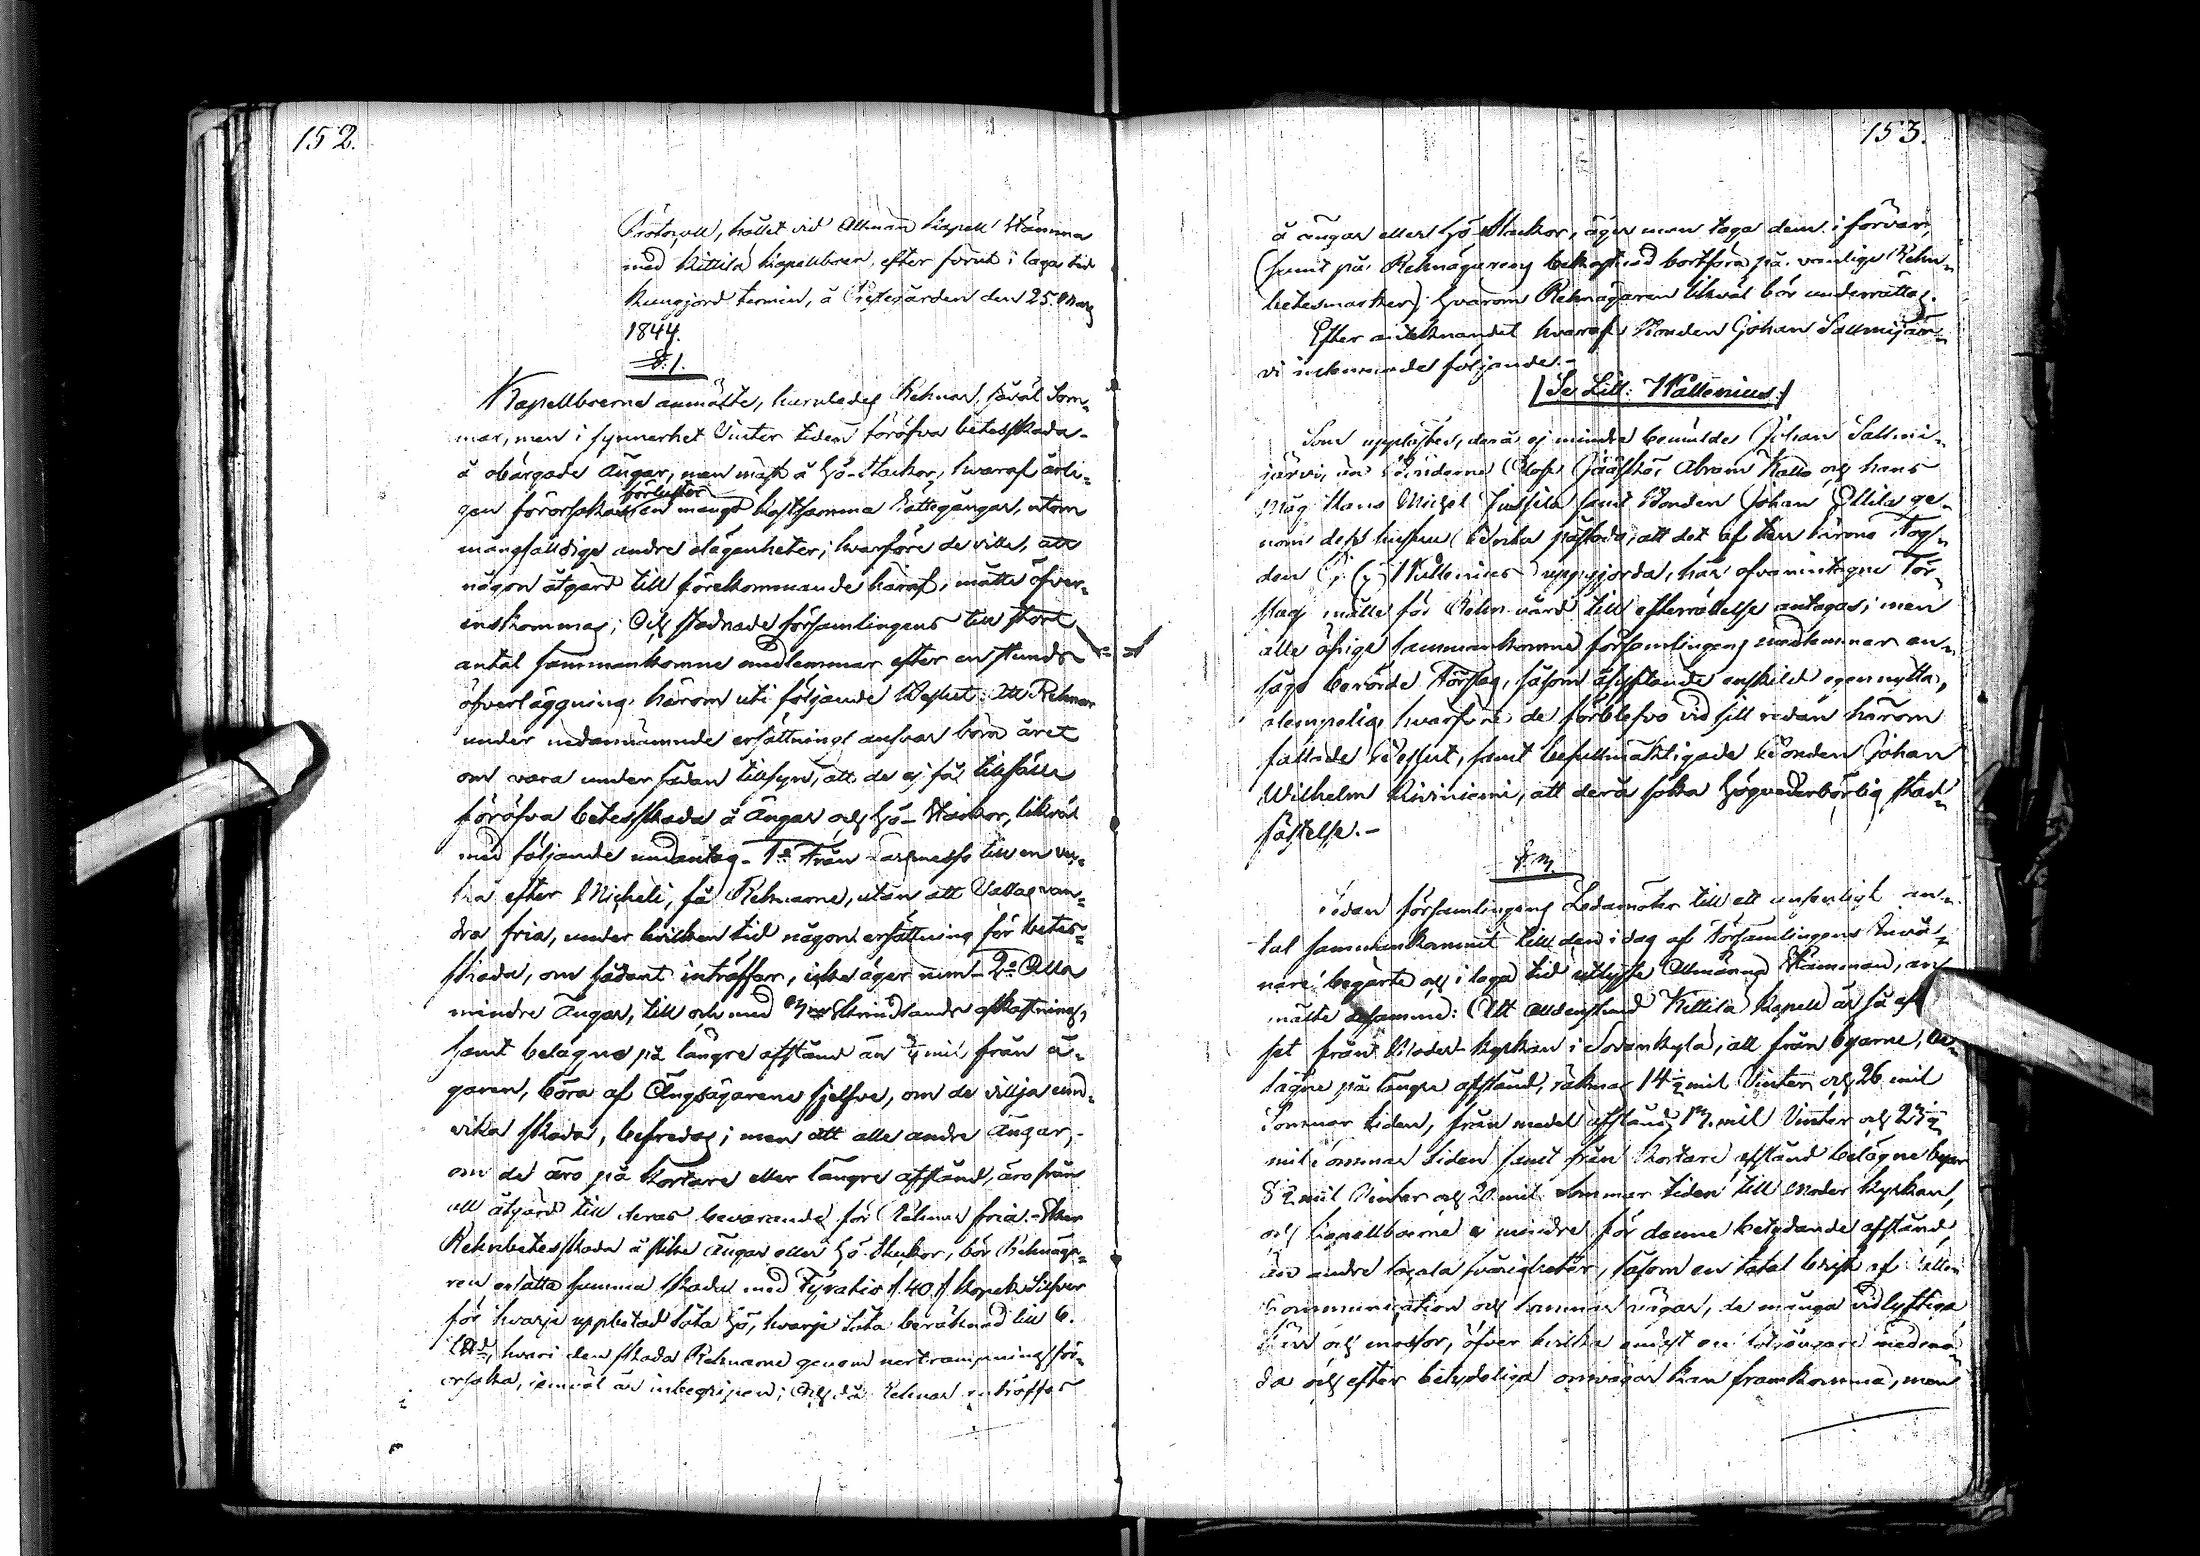 152.
Protocoll, hållet vid Allmän Kapell Stämma
med Kittilä Kapellboer, efter förut i laga tid
kungjord termin, å Prestgården den 25. Mars
1844.
§. 1.
Kapellboerne anmälte, huruledes Rehnar, såväl Som-
mar, men i synnerhet Vinter tiden föröfva betesskada
å obärgade Ängar, men mäst å Hö-Stackor, hvaraf årli-
gen förorsakas förluster en mängd kostsamma Rättegångar, utom
mångfaldige andre olägenheter; hvarföre de ville, att
någon åtgärd till förekommande häraf, måtte öfver-
enskommas; Och stadnade församlingens till stort
antal sammankomne medlemmar efter en stunds
öfverläggning härom uti följande Beslut: Att Rehnar
under nedannämnde ersättnings ansvar böra året
om vara under sådan tillsyn, att de ej få tillfälle
föröfva betesskada å Ängar och Hö-Stackor, likväl
med följande undantag. 1o Från Larsmesso till en vec-
ka efter Micheli, få Rehnarne, utan att Vallas van-
dra fria, under hvilken tid någon ersättning för betes-
skada, om sådant inträffar, icke äger rum. 2o Alla
mindre Ängar, till och med Skrindlands afkastning,
samt belägne på längre afstånd än 3/4 mil från ä-
garen, böra af Ängsägarene sjelfve, om de villja und-
vika skada, befredas; men att alle andre Ängar,
om de äro på kortare eller längre afstånd, äro från
all åtgärd till deras bevarande för Rehnar fria. Sker
Rehnbetesskada å slike Ängar eller Hö-Stackor, bör Rehnäga-
ren ersätta samma skada med Fyratio /.40./ Kopek Silfver
för hvarje uppbetad Såta Hö, hvarje Såta beräknad till 6.
LØd, hvari den skada Rehnarne genom nertrampning för-
orsaka, jemväl är inbegripen; Och då Rehnar inträffas
153.
å ängar eller Hö-Stackor, äger man taga dem i förvar,
(samt på Rehnägarens bekostnad bortföra på vanlige Rehn-
betesmarker); hvarom Rehnägaren likväl bör underrättas.
Efter antecknandet hvaraf Bonden Johan Sallmijär-
vi inlemnade följande.-
/Se Litt: Wallenius:/
Som upplästes, derå ej mindre bemälde Johan Sallmi-
järvi, än Bönderne Olof Jääskö, Abram Kallo och hans
Måg Hans Michel Jussila samt Bonden Johan Ollila ge-
nom dess hustru Brita påstodo, att det af Herr Krono Fog-
den J. G. Wallenius uppgjorda, här ofvanintagne För-
slag måtte för Rehn-vård till efterrättelse antagas; men
alle öfrige sammankomne församlingens medlemmar an-
sågo berörde Förslag, såsom åsyftande enskild egennytta,
olämpelig, hvarföre de förblefvo vid sitt redan härom
fattade Beslut, samt befullmäktigade Bonden Johan
Wilhelm Kiviniemi, att derå söka Högvederbörlig stad-
fästelse.-
§. 2.
Sedan församlingens Ledamöter till ett ansenligt an-
tal sammankommit till den i dag af Församlingens Invå-
nare begärte och i laga tid utlyste Allmänna Stämman, an-
mälte desamme: Att alldenstund Kittilä Kapell är så af-
set från Moder-kyrkan i Sodankylä, att från byarne, be-
lägne på längre afstånd, räknas 14 1/2 mil Vinter och 26 mil
Sommar tiden, från medel afstånd 12. mil Vinter och 23 1/2
mil Sommar tiden samt från kortare afstånd belägne byar
8 1/2 mil Vinter och 20 mil Sommar tiden till Moder kyrkan,
och Kapellboerne ej mindre för denne betydande afstånd,
än andre locala svårigheter, såsom en total brist af
Communication och Sommar vägar, de många vidlyftiga
Kärr och mossor, öfver hvilka endast en fotgängare med mö-
da och efter betydeliga omvägar kan framkomma, men